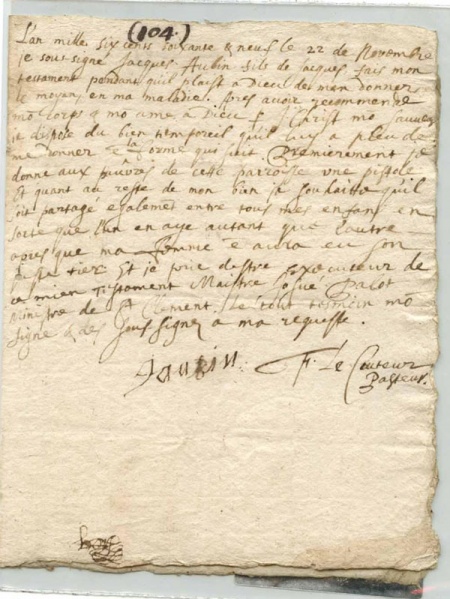 (104.)
L'an mille six cents soixante & neuf le 22 de Novembre
je sous signé Jacques Aubin fils de Jacques fais mon
testament pendant qu'il plaist a Dieu de men donner
le moyen en ma maladie. apres avoir recommandé
mo corps & mo ame a Dieu Christ mo sauveur
je dispose du bien temporeil qu'il luy a pleu de
me donner e la forme qui suit. Premierement je
donne aux pauvres de ceste parroisse une pistole
Et quant au reste de mon bien je souhaitte qu'il
soit partagé egalemet entre tous mes enfans en
sorte que l'un en aye autant que l'autre
apres que ma femme e aura eu son
tiers Et je prie destre executeur de
ce mien Testament Maistre Josue Palot
ministre de St Clement. Le tout tesmoin mo
signe & des sous signez a ma requeste.
J aubin.
F. Le Couteur
Pasteur.